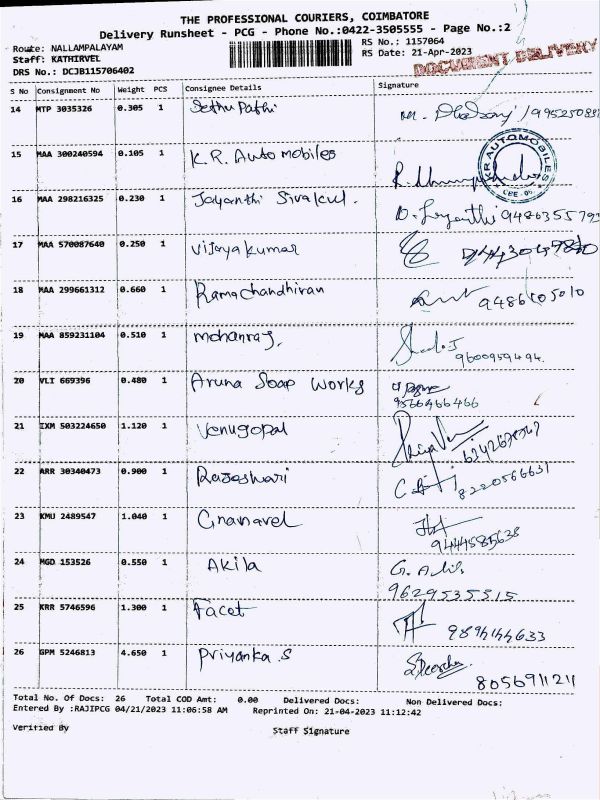 THE PROFESSIONAL COURIERS, COIMBATORE
Delivery Runsheet - PCG - Phone No.:0422-3505555 - Page No.:2
Route: NALLAMPALAYAM
RS No.: 1157064
Staff: KATHIRVEL
RS Date: 21-Apr-2023
DRS No.: DCJB115706402
DOCUMENT DELIVERY
S No Consignment No Weight PCS Consignee Details Signature
14 MTP 3035326 0.305 1 Sethu Pathi
15 MAA 300240594 0.105 1 K.R. Automobiles
KR AUTOMOBILES
16 MAA 298216325 0.230 1 Jayanthi Sivakul.
17 MAA 570087640 0.250 1 Vijayakumar
18 MAA 299661312 0.660 1 Ramachandhiran
19 MAA 859231104 0.510 1 mohanraj.
9600959494.
20 VLI 669396 0.480 1 Aruna Soap Works
9566466466
21 IXM 503224650 1.120 1 Venugopal
22 ARR 30340473 0.900 1 Rajeshwari
8220566631
23 KMU 2489547 1.040 1 Gnanavel
9444585638
24 MGD 153526 0.550 1 Akila
9629535515
25 KRR 5746596 1.300 1 Facet
26 GPM 5246813 4.650 1 Priyanka.S
8056911211
Total No. Of Docs: 26 Total COD Amt: 0.00 Delivered Docs: Non Delivered Docs:
Entered By :RAJIPCG 04/21/2023 11:06:58 AM Reprinted On: 21-04-2023 11:12:42
Verified By
Staff Signature